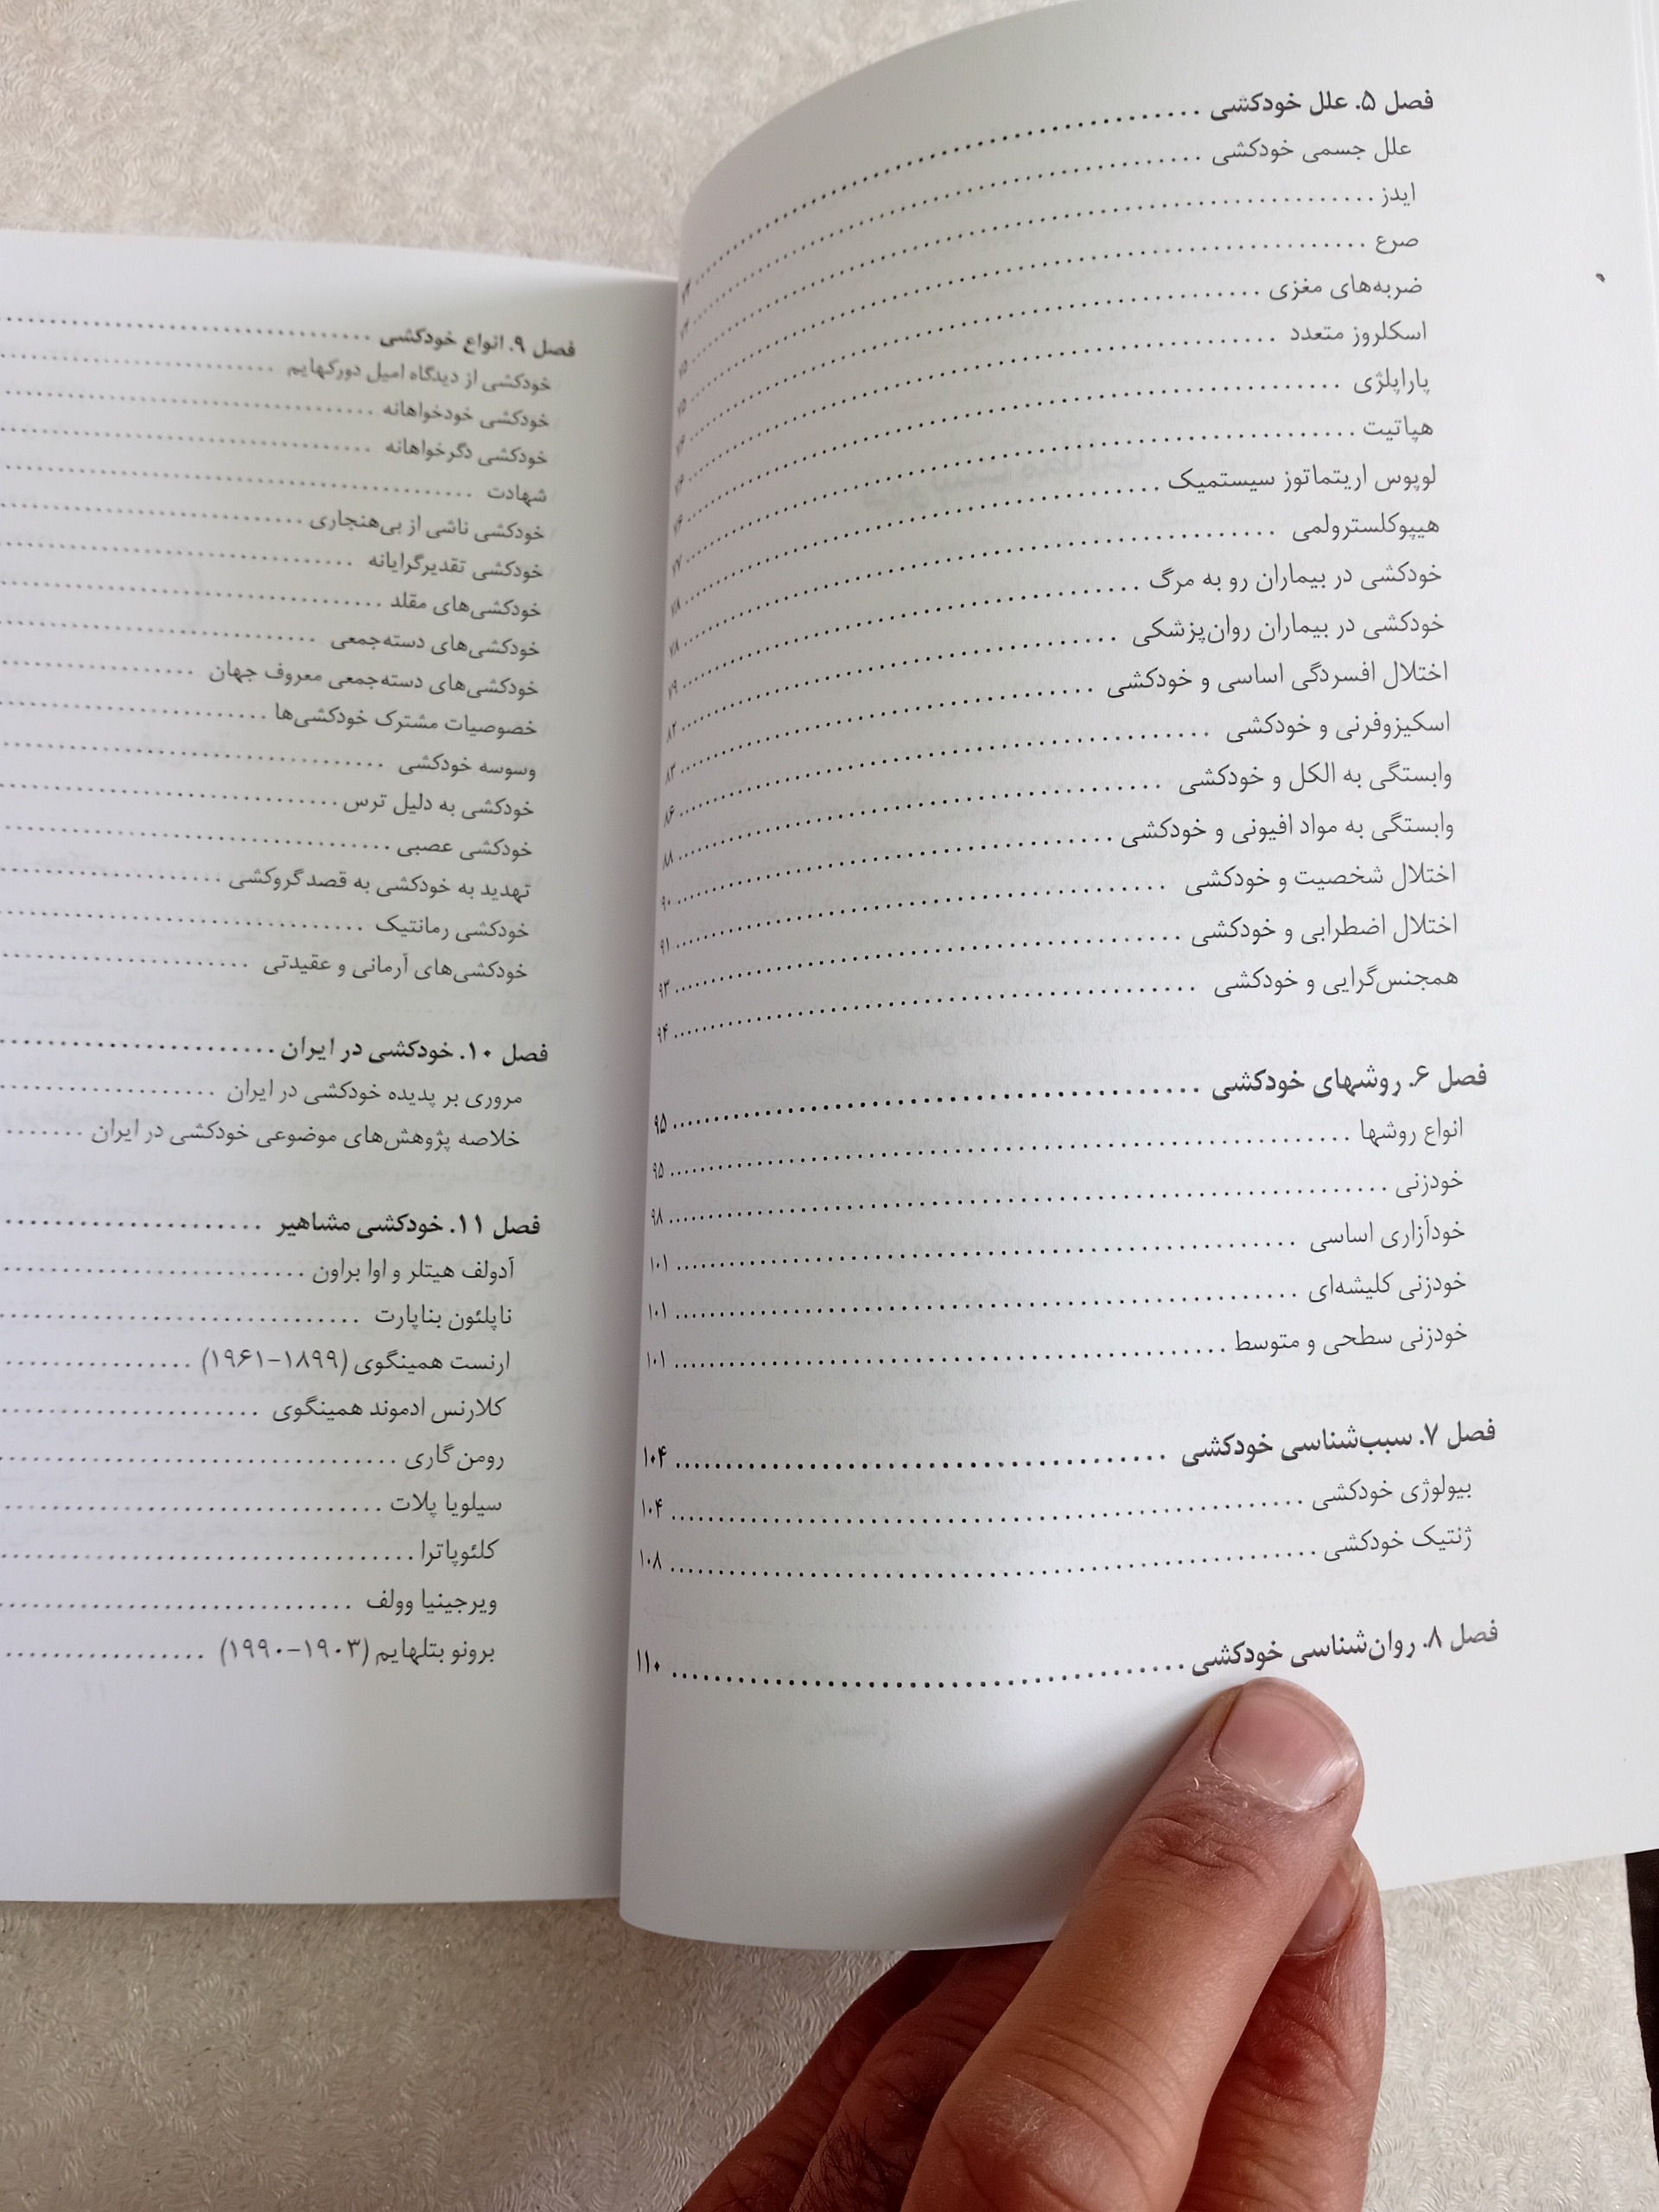 فصل ۵. علل خودکشی
علل جسمی خودکشی
ایدز
صرع
ضربه‌های مغزی
اسکلروز متعدد
پاراپلژی
هپاتیت
لوپوس اریتماتوز سیستمیک
هیپوکلسترولمی
خودکشی در بیماران رو به مرگ
خودکشی در بیماران روان‌پزشکی
اختلال افسردگی اساسی و خودکشی
اسکیزوفرنی و خودکشی
وابستگی به الکل و خودکشی
وابستگی به مواد افیونی و خودکشی
اختلال شخصیت و خودکشی
اختلال اضطرابی و خودکشی ........ ۹۳
همجنس‌گرایی و خودکشی ........ ۹۴
فصل ۶. روشهای خودکشی ........ ۹۵
انواع روشها ........ ۹۵
خودزنی ........ ۹۸
خودآزاری اساسی ........ ۱۰۱
خودزنی کلیشه‌ای ........ ۱۰۱
خودزنی سطحی و متوسط ........ ۱۰۱
فصل ۷. سبب‌شناسی خودکشی ........ ۱۰۴
بیولوژی خودکشی ........ ۱۰۴
ژنتیک خودکشی ........ ۱۰۸
فصل ۸. روان‌شناسی خودکشی ........ ۱۱۰
فصل ۹. انواع خودکشی
خودکشی از دیدگاه امیل دورکهایم
خودکشی خودخواهانه
خودکشی دگرخواهانه
شهادت
خودکشی ناشی از بی‌هنجاری
خودکشی تقدیرگرایانه
خودکشی‌های مقلد
خودکشی‌های دسته‌جمعی
خودکشی‌های دسته‌جمعی معروف جهان
خصوصیات مشترک خودکشی‌ها
وسوسه خودکشی
خودکشی به دلیل ترس
خودکشی عصبی
تهدید به خودکشی به قصد گروکشی
خودکشی رمانتیک
خودکشی‌های آرمانی و عقیدتی
فصل ۱۰. خودکشی در ایران
مروری بر پدیده خودکشی در ایران
خلاصه پژوهش‌های موضوعی خودکشی در ایران
فصل ۱۱. خودکشی مشاهیر
آدولف هیتلر و اوا براون
ناپلئون بناپارت
ارنست همینگوی (۱۸۹۹–۱۹۶۱)
کلارنس ادموند همینگوی
رومن گاری
سیلویا پلات
کلئوپاترا
ویرجینیا وولف
برونو بتلهایم (۱۹۰۳–۱۹۹۰)